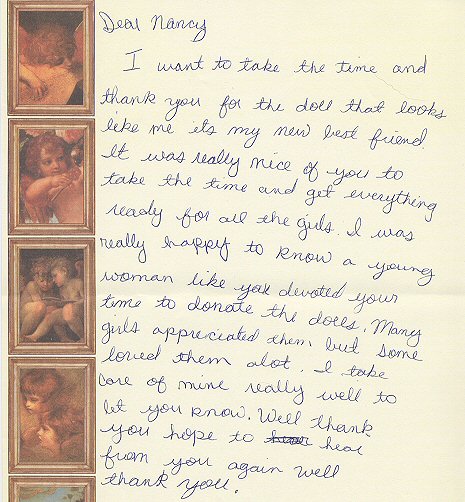 Dear Nancy
I want to take the time and
thank you for the doll that looks
like me its my new best friend.
It was really nice of you to
take the time and get everything
ready for all the girls. I was
really happy to know a young
woman like you devoted your
time to donate the dolls. Many
girls appreciated them but some
loved them alot. I take
care of mine really well to
let you know. Well thank
you hope to hear
from you again well
thank you.